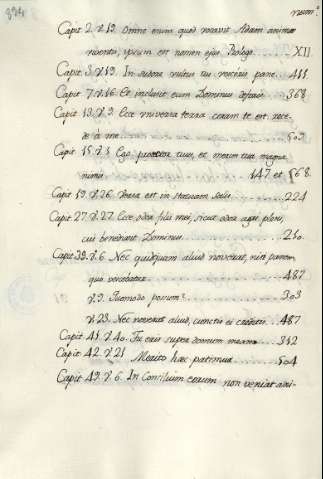 894
num.º
Capit 2. v. 19. Omne enim quod vocavit Adam animæ
viventis, ipsum est nomen ejus. Prologo ... XII
Capit 3. v. 19. In sudore vultus tui vesceris pane. 411.
Capit 7. v. 16. Et inclusit eum Dominus deforis ... 368
Capit 13. v. 9. Ecce universa terra coram te est: rece-
de à me ... 509
Capit 15. v. 1. Ego protector tuus, et merces tua magna
nimis ... 147 et 568.
Capit 19. v. 26. Versa est in statuam salis ... 224
Capit 27. v. 27. Ecce odor filii mei, sicut odor agri pleni,
cui benedixit Dominus ... 250.
Capit 39. v. 6. Nec quidquam aliud noverat, nisi panem
quo vescebatur ... 487
v. 9. Quomodo possum? ... 303
v. 23. Nec noverat aliud, cunctis ei creditis. 487
Capit 41. v. 40. Tu eris super domum meam ... 312
Capit 42. v. 21 Merito hæc patimur ... 504
Capit 49. v. 6. In Concilium eorum non veniat ani-